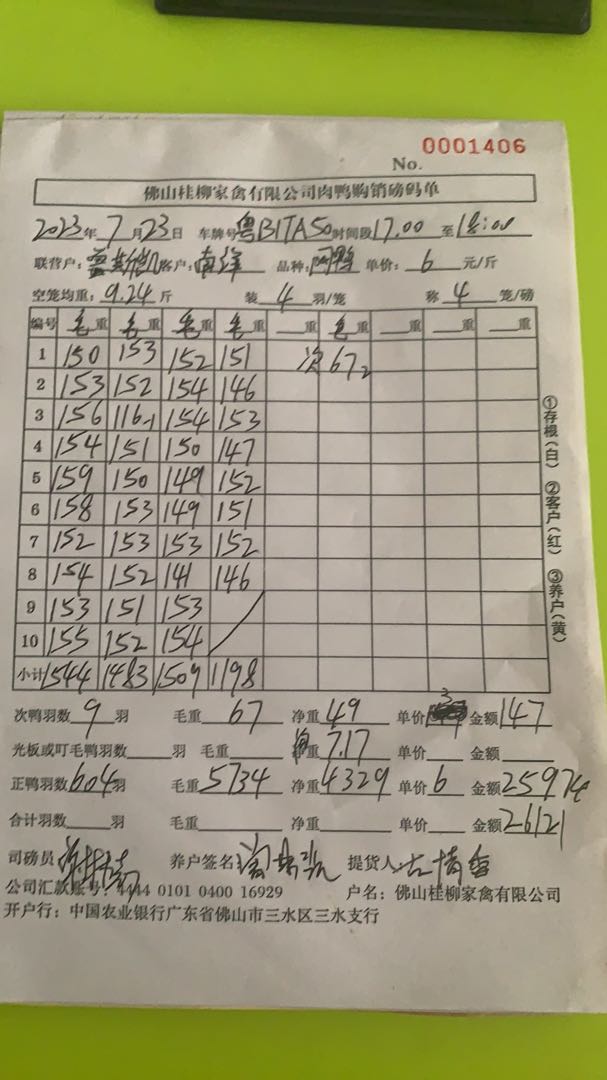 0001406
No.
佛山桂柳家禽有限公司肉鸭购销磅码单
2023年 7月23日 车牌号 粤BITA50 时间段 17:00 至 18:00
联营户： 客户：南洋 品种：肉鸭 单价：6 元/斤
空笼均重：9.24 斤 装 4 羽/笼 称 4 笼/磅
编号 毛重 毛重 毛重 毛重 重 毛重 重 重 重
1 150 153 152 151 次 67 2
2 153 152 154 146
3 156 116-1 154 153
4 154 151 150 147
5 159 150 149 152
6 158 153 149 151
7 152 153 153 152
8 154 152 141 146
9 153 151 153
10 155 152 154
小计 1544 1483 1509 1198
①存根(白) ②客户(红) ③养户(黄)
次鸭羽数 9 羽 毛重 67 净重 49 单价 3 金额 147
光板或叮毛鸭羽数 羽 毛重 净重 7.17 单价 金额
正鸭羽数 604 羽 毛重 5734 净重 4329 单价 6 金额 25974
合计羽数 羽 毛重 净重 单价 金额 26121
司磅员 养户签名： 提货人：
公司汇款账号：4444 0101 0400 16929 户名：佛山桂柳家禽有限公司
开户行：中国农业银行广东省佛山市三水区三水支行